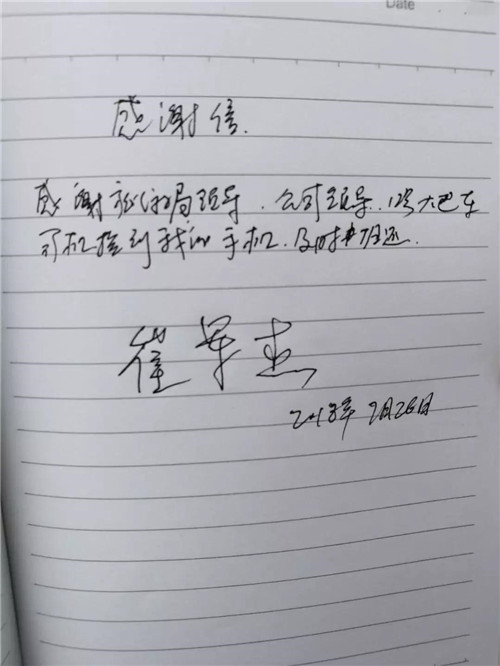 Date
感谢信.
感谢旅游局领导.公司领导.12号大巴车
司机捡到我的手机.及时归还.
崔军杰
2018年9月26日